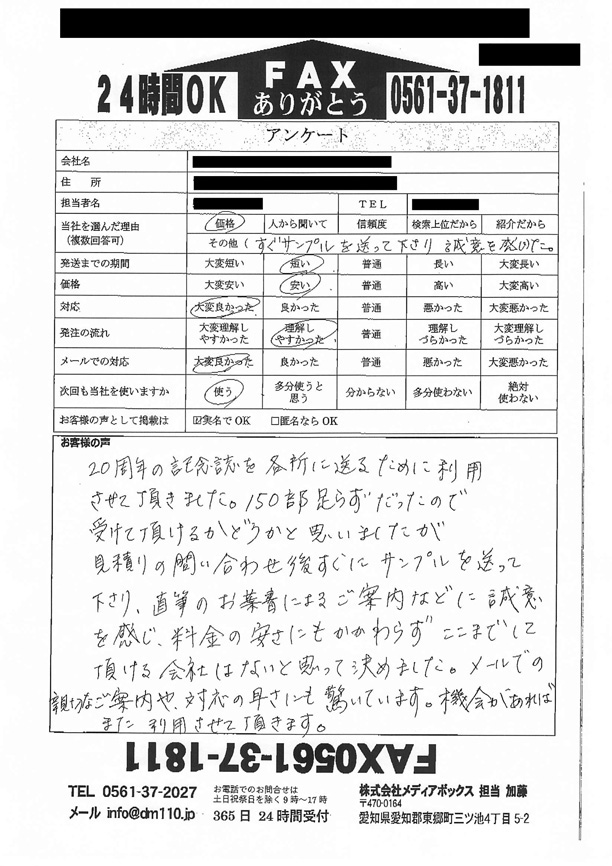 24時間OK
FAX
ありがとう
0561-37-1811
アンケート
会社名
住 所
担当者名 TEL
当社を選んだ理由
(複数回答可)
価格 人から聞いて 信頼度 検索上位だから 紹介だから
その他(すぐサンプルを送って下さり誠意を感じた。
発送までの期間 大変短い 短い 普通 長い 大変長い
価格 大変安い 安い 普通 高い 大変高い
対応 大変良かった 良かった 普通 悪かった 大変悪かった
発注の流れ 大変理解しやすかった 理解しやすかった 普通 理解しづらかった 大変理解しづらかった
メールでの対応 大変良かった 良かった 普通 悪かった 大変悪かった
次回も当社を使いますか 使う 多分使うと思う 分からない 多分使わない 絶対使わない
お客様の声として掲載は ☑実名でOK □匿名ならOK
お客様の声
20周年の記念誌を各所に送るために利用
させて頂きました。150部足らずだったので
受けて頂けるかどうかと思いましたが
見積りの問い合わせ後すぐにサンプルを送って
下さり、直筆のお葉書によるご案内などに誠意
を感じ、料金の安さにもかかわらずここまでして
頂ける会社はないと思って決めました。メールでの
親切なご案内や、対応の早さにも驚いています。機会があれば
また利用させて頂きます。
FAX0561-37-1811
TEL 0561-37-2027
メール info@dm110.jp
お電話でのお問合せは
土日祝祭日を除く9時～17時
365日24時間受付
株式会社メディアボックス 担当 加藤
〒470-0164
愛知県愛知郡東郷町三ツ池4丁目5-2